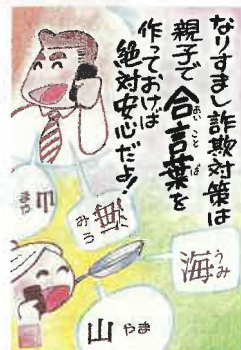 なりすまし詐欺対策は
親子で合言葉を
あいことば
作っておけば
絶対安心だよ!
海うみ
山やま